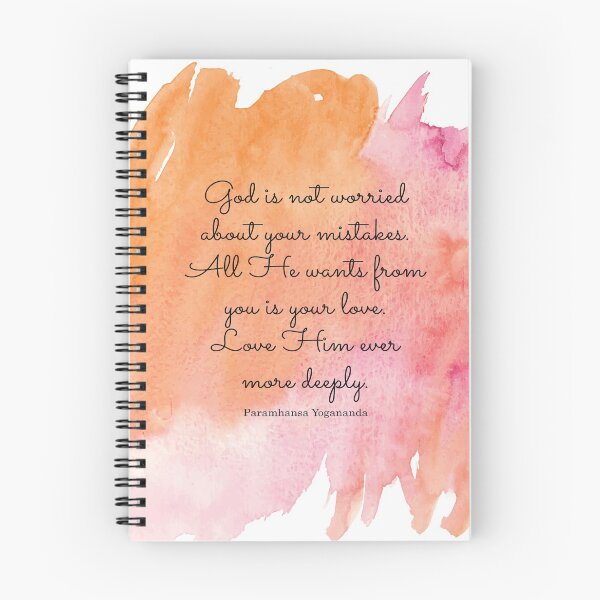 God is not worried
about your mistakes.
All He wants from
you is your love.
Love Him ever
more deeply.
Paramhansa Yogananda